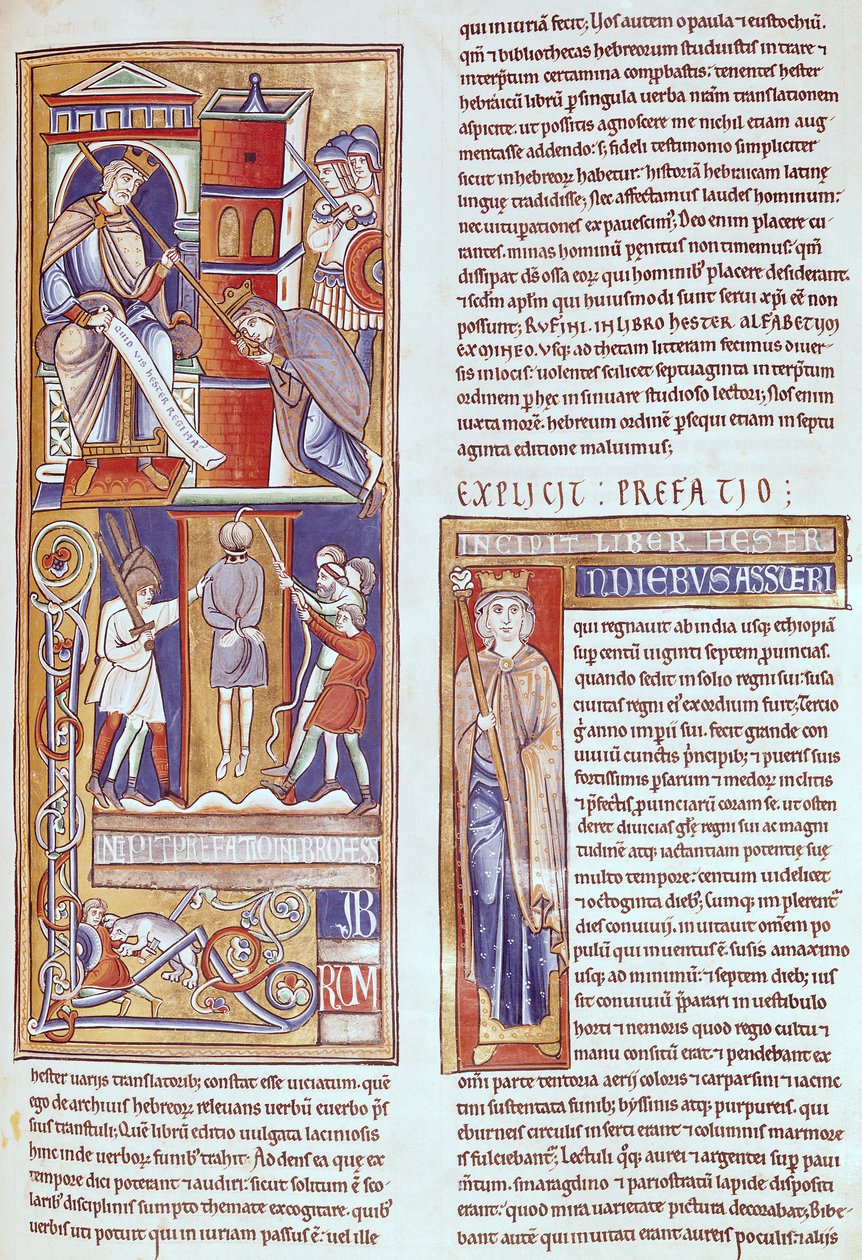 QUID VIS HESTER REGINA
INCIPIT PREFATIO IN LIBRO HESS
R
LIB
RUM
hester variis translatorib; constat esse viciatum. quē
ego de archivis hebreoꝝ relevans verbū e verbo p̄s
sius transtuli; Quē librū editio vulgata laciniosis
hinc inde verboꝝ funib; trahit. Addens ea quę ex
tempore dici poterant ⁊ audiri. sicut solitum ē sco-
larib; disciplinis sumpto themate excogitare. quib;
verbis uti potuit qui iniuriam passus ē. vel ille
qui iniuriā fecit; Vos autem o paula ⁊ eustochiū.
qm̄ ⁊ bibliothecas hebreorum studuistis intrare ⁊
interp̄tum certamina comp̱bastis: tenentes hester
hebraicū librū p̱ singula verba nr̄am translationem
aspicite. ut possitis agnoscere me nichil etiam aug-
mentasse addendo: s; fideli testimonio simpliciter
sicut in hebreoꝝ habetur. historiā hebraicam latinę
linguę tradidisse; Nec affectamus laudes hominum:
nec vitup̱ationes expavescim'; Deo enim placere cu-
rantes. minas hominū pęnitus non timemus. qm̄
dissipat ds̄ ossa eoꝝ qui hominib; placere desiderant.
⁊ scd̄m apl̄m qui huiusmodi sunt servi xp̄i eē non
possunt; RUFINI. IN LIBRO HESTER ALFABETUM
EX MINEO. Usq; ad thetam litteram fecimus diver-
sis in locis: volentes scilicet septuaginta interp̄tum
ordinem p̱ hęc insinuare studioso lectori; Nos enim
iuxta morē. hebreum ordinē p̱sequi etiam in septu
aginta editione maluimus;
EXPLICIT : PREFATIO ;
INCIPIT LIBER HESTR
N DIEBUS ASSUERI
qui regnavit ab india usq; ethiopiā
sup̱ centū viginti septem p̱vincias.
quando sedit in solio regni sui. susa
civitas regni ei' exordium fuit; Tercio
g̊ anno imp̱ii sui. fecit grande con
viviū cunctis p̱ncipib; ⁊ pueris suis
fortissimis p̱sarum ⁊ medoꝝ inclitis
⁊ p̄fectis p̱vinciarū coram se. ut osten
deret divicias glę regni sui ac magni
tudinē atq; iactantiam potentię suę
multo tempore: centum videlicet
⁊ octoginta dieb; Cumq; implerent˜
dies convivii. invitavit om̄em po
pulū qui inventus ē. susis a maximo
usq; ad minimū. ⁊ septem dieb; ius
sit conviviū p̄parari in vestibulo
horti ⁊ nemoris quod regio cultu ⁊
manu consitū erat. ⁊ pendebant ex
om̄i parte tentoria aerii coloris ⁊ carpasini ⁊ iacinc
tini sustentata funib; byssinis atq; purpureis. qui
eburneis circulis inserti erant ⁊ columnis marmore
is fulciebant˜; Lectuli q̊q; aurei ⁊ argentei sup̱ pavi
m̄tum. smaragdino ⁊ pario stratū lapide dispositi
erant: quod mira varietate pictura decorabat; Bibe-
bant autē qui invitati erant aureis poculis: ⁊ aliis